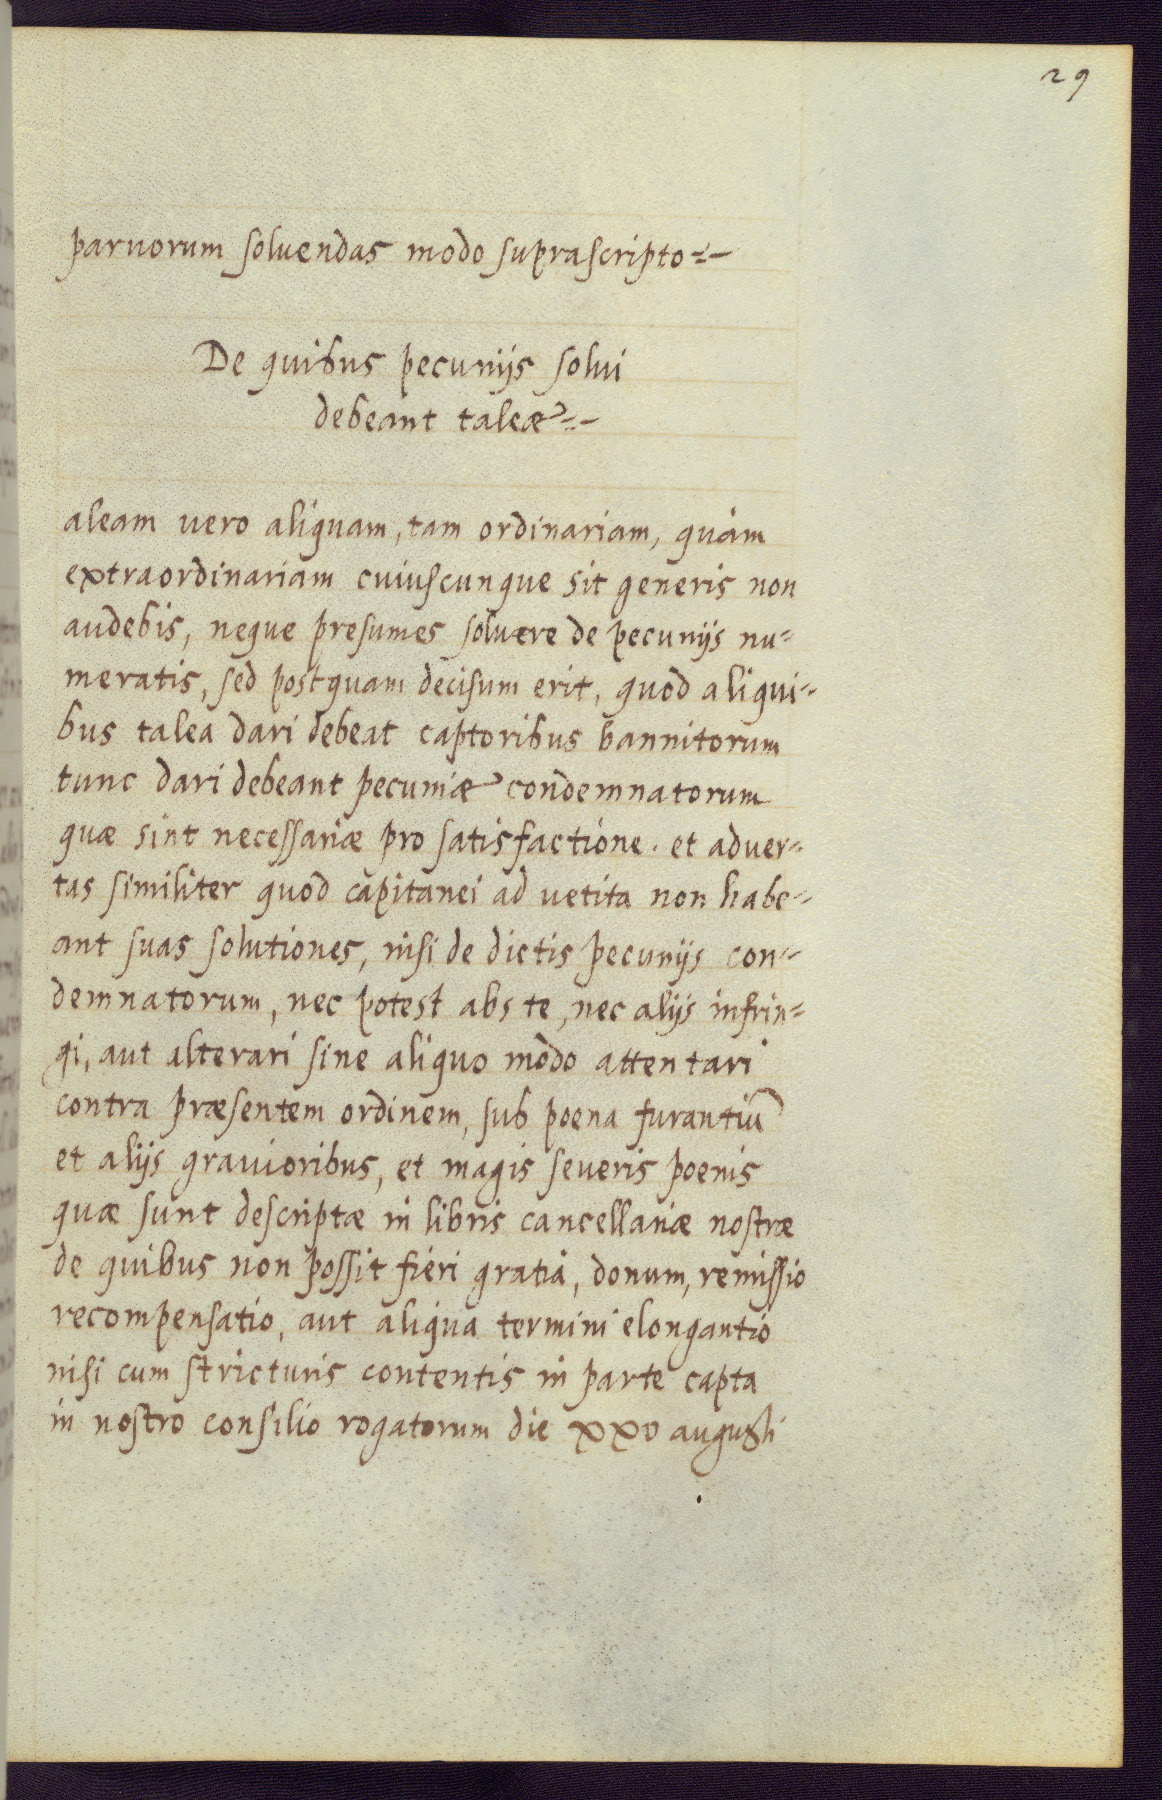 29
paruorum soluendas modo suprascripto=-
De quibus pecunijs solui
debeant taleæ=-
aleam uero aliquam, tam ordinariam, quàm
extraordinariam cuiuscunque sit generis non
audebis, neque presumes soluere de pecunijs nu=
meratis, sed postquam decisum erit, quod aliqui=
bus talea dari debeat captoribus bannitorum
tunc dari debeant pecuniæ condemnatorum
quæ sint necessariæ pro satisfactione. et aduer=
tas similiter quod capitanei ad uetita non habe=
ant suas solutiones, nisi de dictis pecunijs con=
demnatorum, nec potest abs te, nec alijs infrin=
gi, aut alterari siue aliquo modo attentari
contra præsentem ordinem, sub poena furantiũ
et alijs grauioribus, et magis seueris poenis
quæ sunt descriptæ in libris cancellariæ nostræ
de quibus non possit fieri gratia, donum, remissio
recompensatio, aut aliqua termini elongantio
nisi cum stricturis contentis in parte capta
in nostro consilio rogatorum die xxv augusti